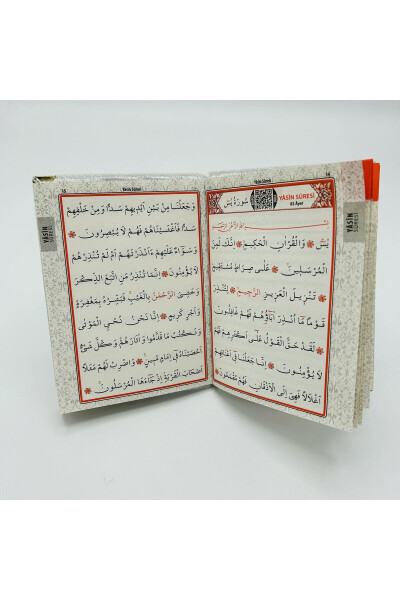 Yâsin Sûresi
14
YÂSİN SÛRESİ
83 Âyet
سُورَةُ يٰسٓ
يٰسٓ ۞ وَالْقُرْاٰنِ الْحَك۪يمِ ۞ اِنَّكَ لَمِنَ
الْمُرْسَل۪ينَ ۞ عَلٰى صِرَاطٍ مُسْتَق۪يمٍ
۞ تَنْز۪يلَ الْعَز۪يزِ الرَّح۪يمِ ۞ لِتُنْذِرَ
قَوْمًا مَٓا اُنْذِرَ اٰبَٓاؤُ۬هُمْ فَهُمْ غَافِلُونَ
۞ لَقَدْ حَقَّ الْقَوْلُ عَلٰٓى اَكْثَرِهِمْ فَهُمْ
لَا يُؤْمِنُونَ ۞ اِنَّا جَعَلْنَا ف۪ٓي اَعْنَاقِهِمْ
اَغْلَالًا فَهِيَ اِلَى الْاَذْقَانِ فَهُمْ مُقْمَحُونَ ۞
YÂSİN
SÛRESİ
15
Yâsin Sûresi
وَجَعَلْنَا مِنْ بَيْنِ اَيْد۪يهِمْ سَدًّا وَمِنْ خَلْفِهِمْ
سَدًّا فَاَغْشَيْنَاهُمْ فَهُمْ لَا يُبْصِرُونَ ۞
وَسَوَٓاءٌ عَلَيْهِمْ ءَاَنْذَرْتَهُمْ اَمْ لَمْ تُنْذِرْهُمْ
لَا يُؤْمِنُونَ ۞ اِنَّمَا تُنْذِرُ مَنِ اتَّبَعَ الذِّكْرَ
وَخَشِيَ الرَّحْمٰنَ بِالْغَيْبِۚ فَبَشِّرْهُ بِمَغْفِرَةٍ
وَاَجْرٍ كَر۪يمٍ ۞ اِنَّا نَحْنُ نُحْيِ الْمَوْتٰى
وَنَكْتُبُ مَا قَدَّمُوا وَاٰثَارَهُمْ وَكُلَّ شَيْءٍ
اَحْصَيْنَاهُ ف۪ٓي اِمَامٍ مُب۪ينٍ ۞ وَاضْرِبْ لَهُمْ مَثَلًا
اَصْحَابَ الْقَرْيَةِۢ اِذْ جَٓاءَهَا الْمُرْسَلُونَ ۞